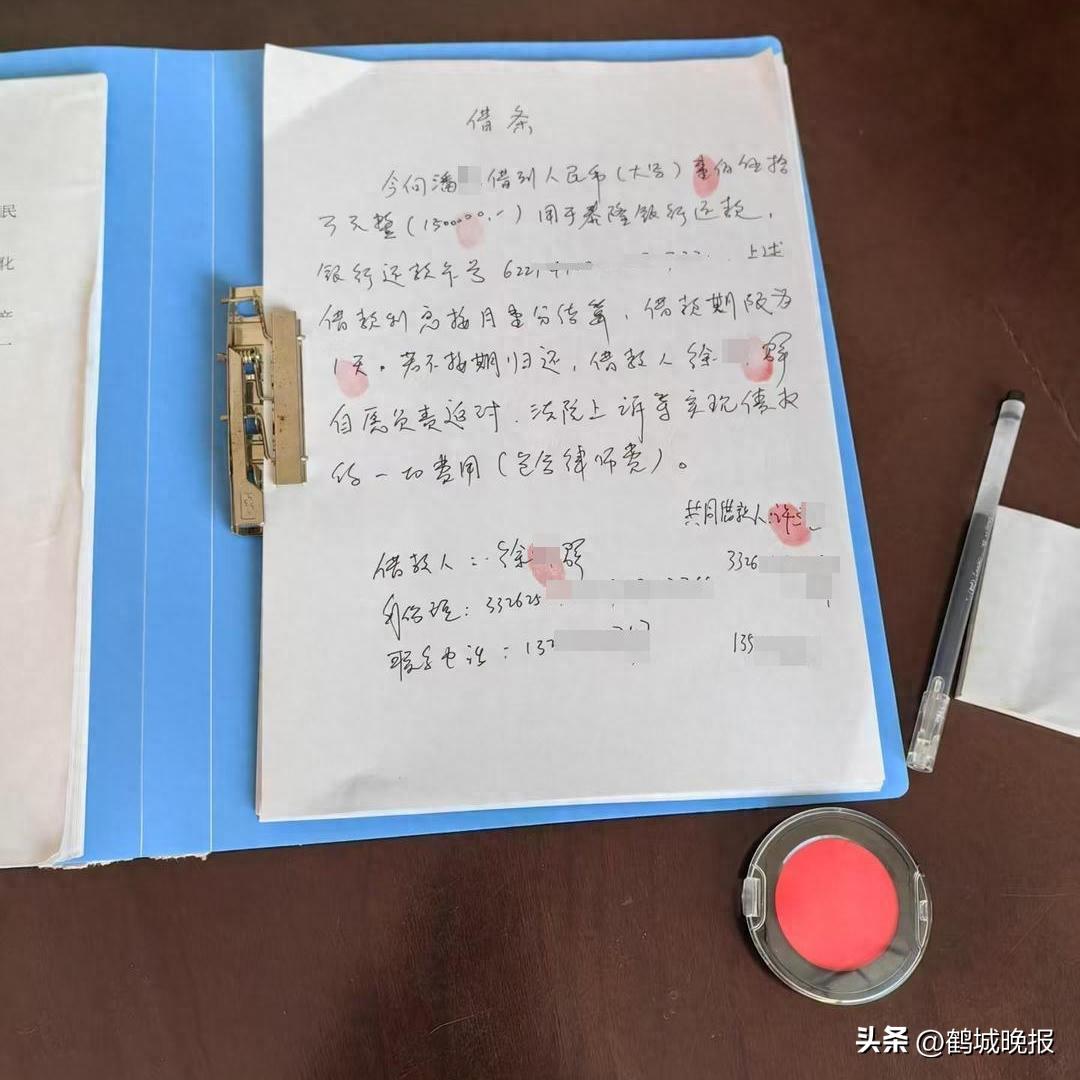 借条
今向潘 借到人民币(大写)壹佰伍拾
万元整(1500000.-)用于泰隆银行还款,
银行还款卡号 622 上述
借款利息按月壹分结算,借款期限为
1天。若不按期归还,借款人徐
自愿负责返对.法院上诉等实现债权
的一切费用(包含律师费)。
共同借款人:许
借款人:徐
3326
身份证:332625
联系电话:137
135
民
化
产
一
头条 @鹤城晚报